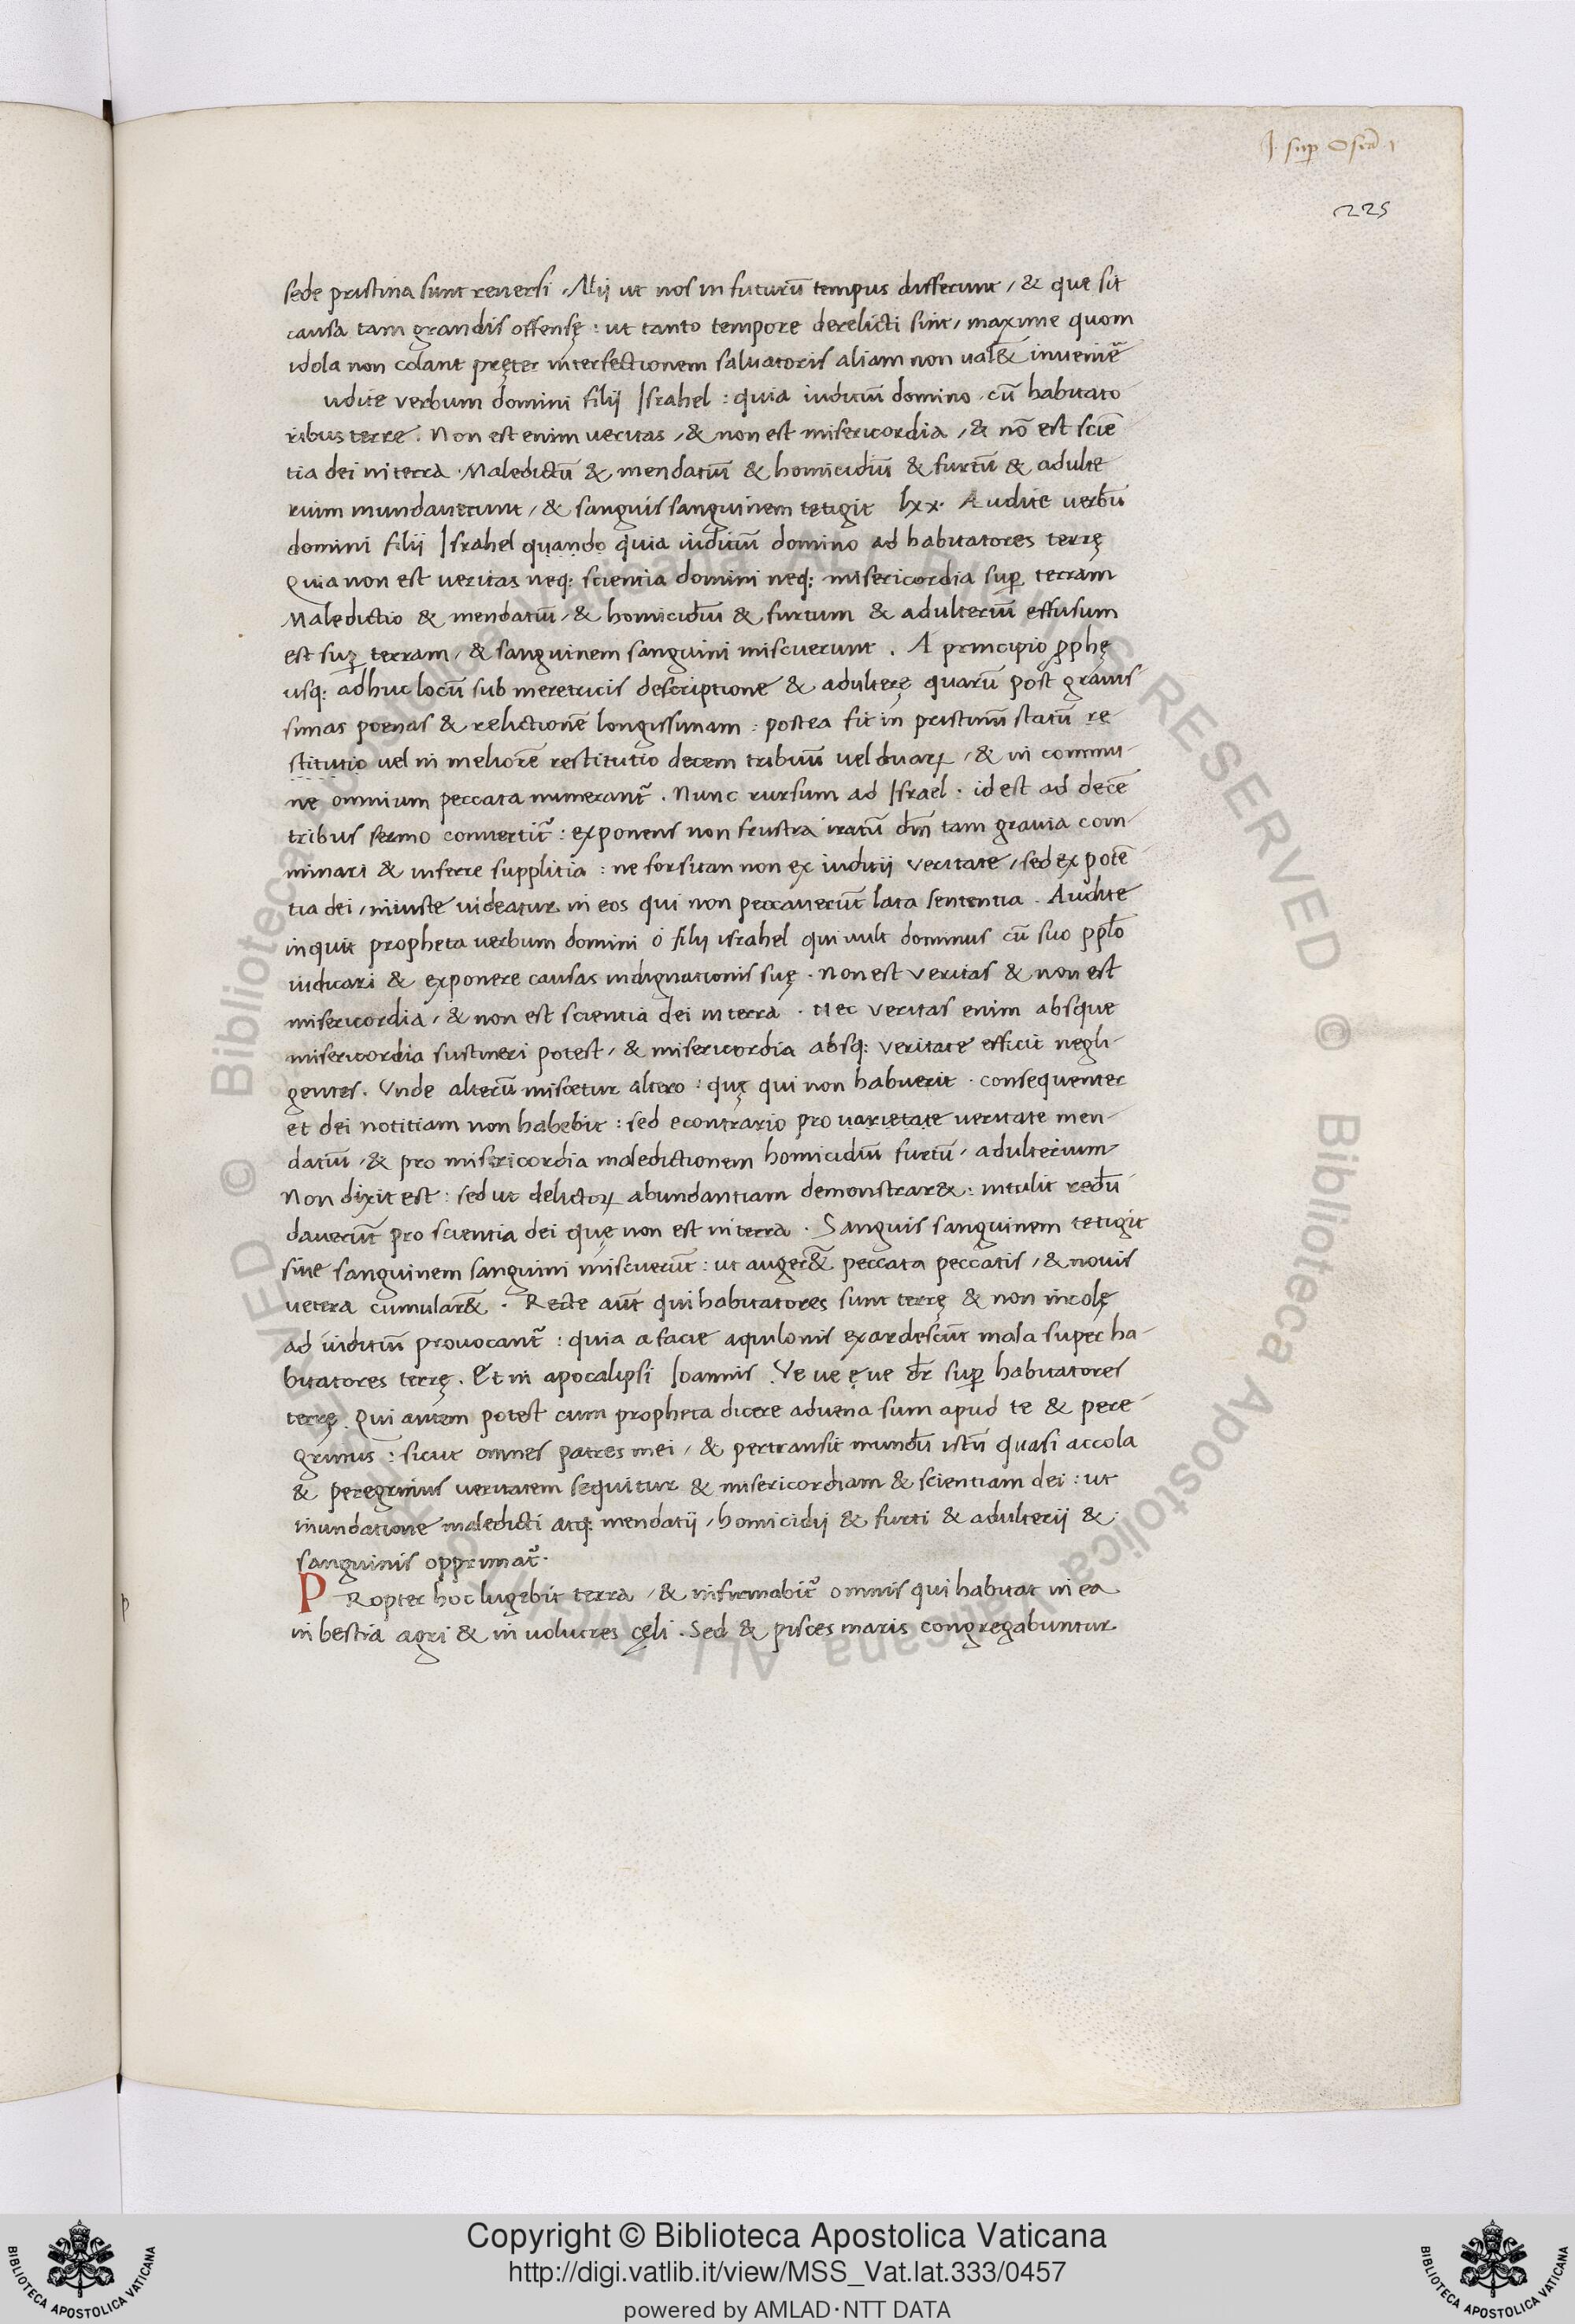 J. sup Oseā 1
225
sede pristina sunt reversi. Alij ut nos in futurū tempus differunt, & quę sit
causa tam grandis offensę: ut tanto tempore derelicti sint, maxime quom
idola non colant pręter interfectionem salvatoris aliam non val& invenir̄
udite verbum domini filij Israhel: quia iuditiū domino. cū habitato
ribus terre. Non est enim veritas, & non est misericordia, & nō est sciē
tia dei in terra. Maledictū & mendatiū & homicidiū & furtū & adulte
rium inundaverunt, & sanguis sanguinem tetigit lxx. Audite verbū
domini filij Israhel quando quia iuditiū domino ad habitatores terrę
Quia non est veritas neq; scientia domini neq; misericordia sup terram
Maledictio & mendatiū, & homicidiū & furtum & adulteriū effusum
est sup terram, & sanguinem sanguini miscuerunt. A principio pphę
usq; adhuc locū sub meretricis descriptione & adulterę quarū post gravis
simas poenas & relictionē longissimam: postea fit in pristinū statū re
stitutio vel in meliorē restitutio decem tribuū vel duaꝝ, & in commu-
ne omnium peccata numerant̄. Nunc rursum ad Israel. id est ad decē
tribus sermo convertit̄: exponens non frustra iratū dn̄m tam gravia com-
minari & inferre supplitia: ne forsitan non ex iuditij veritate, sed ex potē
tia dei, iniuste videatur in eos qui non peccaverūt lata sententia. Audite
inquit propheta verbum domini ó filij israhel qui vult dominus cū suo pplō
iudicari & exponere causas indignationis suę. Non est veritas & non est
misericordia, & non est scientia dei in terra. Nec veritas enim absque
misericordia sustineri potest, & misericordia absq; veritate efficit negli-
gentes. Unde alterū miscetur altero: quę qui non habuerit. consequenter
et dei notitiam non habebit: sed econtrario pro varietate veritate men-
datiū, & pro misericordia maledictionem homicidiū furtū, adulterium
Non dixit est: sed ut delictoꝝ abundantiam demonstrar&: intulit redū
daverūt pro scientia dei quę non est in terra. Sanguis sanguinem tetigit
sive sanguinem sanguini miscuerūt: ut auger&̄ peccata peccatis, & novis
vetera cumular&̄. Recte aūt qui habitatores sunt terrę & non incolę
ad iuditiū provocant̄: quia a facie aquilonis exardescūt mala super ha-
bitatores terrę. Et in apocalipsi Ioannis. Ve ve ę ve dr̄ sup habitatores
terrę. Qui autem potest cum propheta dicere advena sum apud te & pere
grinus: sicut omnes patres mei, & pertransit mundū istū quasi accola
& peregrinus veritatem sequitur & misericordiam & scientiam dei: ut
inundatione maledicti atq; mendatij, homicidij & furti & adulterij &
sanguinis opprimat̄.
P Ropter hoc lugebit terra, & infirmabit̄ omnis qui habitat in ea
in bestia agri & in volucres cęli. Sed & pisces maris congregabuntur
p
Copyright © Biblioteca Apostolica Vaticana
http://digi.vatlib.it/view/MSS_Vat.lat.333/0457
powered by AMLAD·NTT DATA
BIBLIOTECA APOSTOLICA VATICANA
BIBLIOTECA APOSTOLICA VATICANA